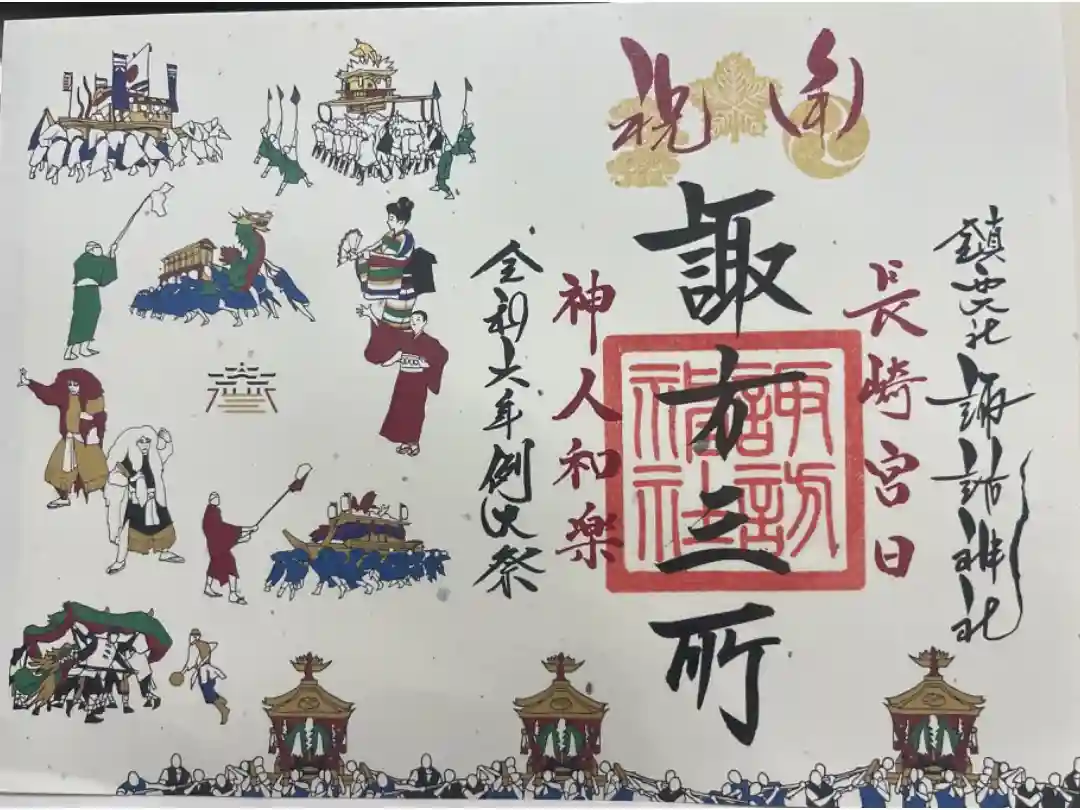 鎮西大社 諏訪神社
長崎宮日
奉祝
諏方三所
諏訪
神社
神人和楽
令和六年例大祭